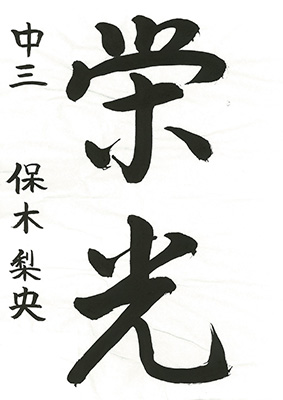 栄光
中三 保木梨央